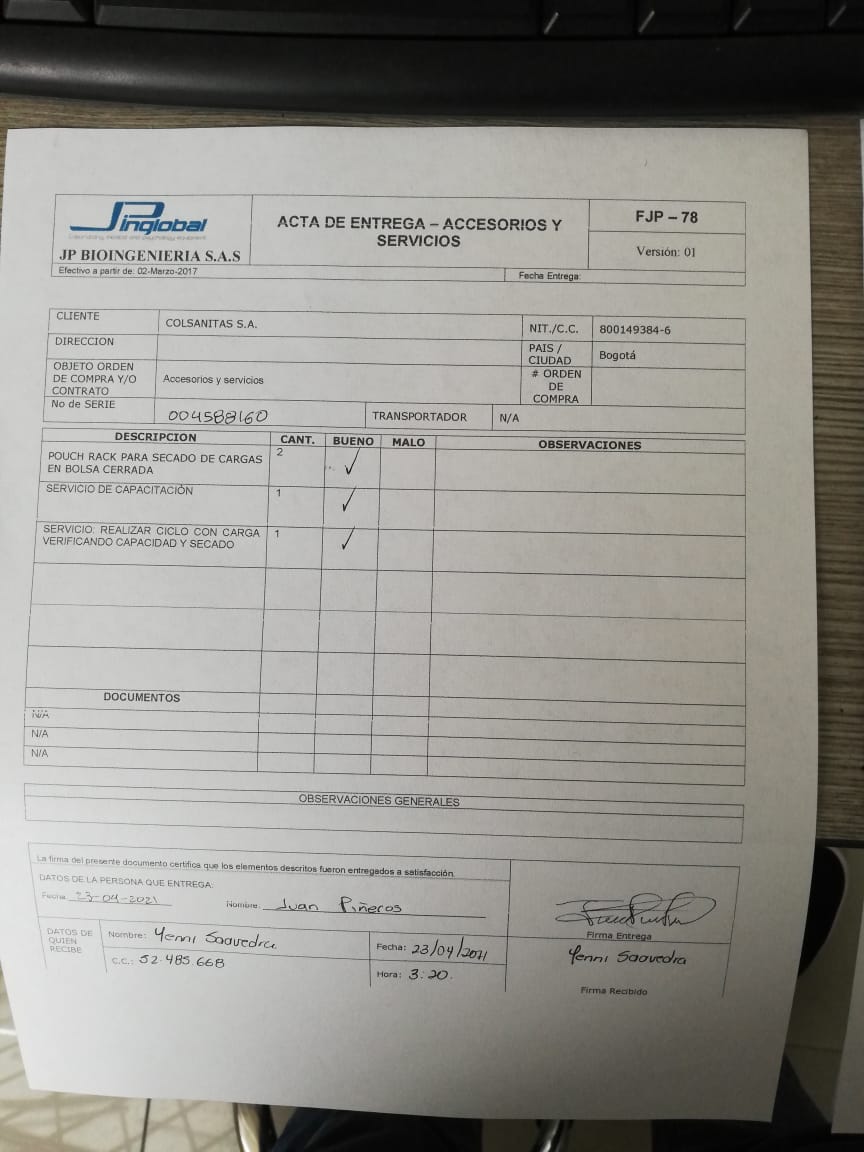 JPinglobal
JP BIOINGENIERIA S.A.S
ACTA DE ENTREGA – ACCESORIOS Y
SERVICIOS
FJP – 78
Versión: 01
Efectivo a partir de: 02-Marzo-2017
Fecha Entrega:
CLIENTE
COLSANITAS S.A.
NIT./C.C.
800149384-6
DIRECCION
PAIS /
CIUDAD
Bogotá
OBJETO ORDEN
DE COMPRA Y/O
CONTRATO
Accesorios y servicios
# ORDEN
DE
COMPRA
No de SERIE
004588160
TRANSPORTADOR
N/A
DESCRIPCION
CANT.
BUENO
MALO
OBSERVACIONES
POUCH RACK PARA SECADO DE CARGAS
EN BOLSA CERRADA
2
✓
SERVICIO DE CAPACITACIÓN
1
✓
SERVICIO: REALIZAR CICLO CON CARGA
VERIFICANDO CAPACIDAD Y SECADO
1
✓
DOCUMENTOS
N/A
N/A
N/A
OBSERVACIONES GENERALES
La firma del presente documento certifica que los elementos descritos fueron entregados a satisfacción.
DATOS DE LA PERSONA QUE ENTREGA:
Fecha: 23-04-2021
Nombre: Juan Piñeros
Firma Entrega
DATOS DE
QUIEN
RECIBE
Nombre: Yenni Saavedra
Fecha: 23/04/2021
C.C.: 52.485.668
Hora: 3:20.
Yenni Saavedra
Firma Recibido